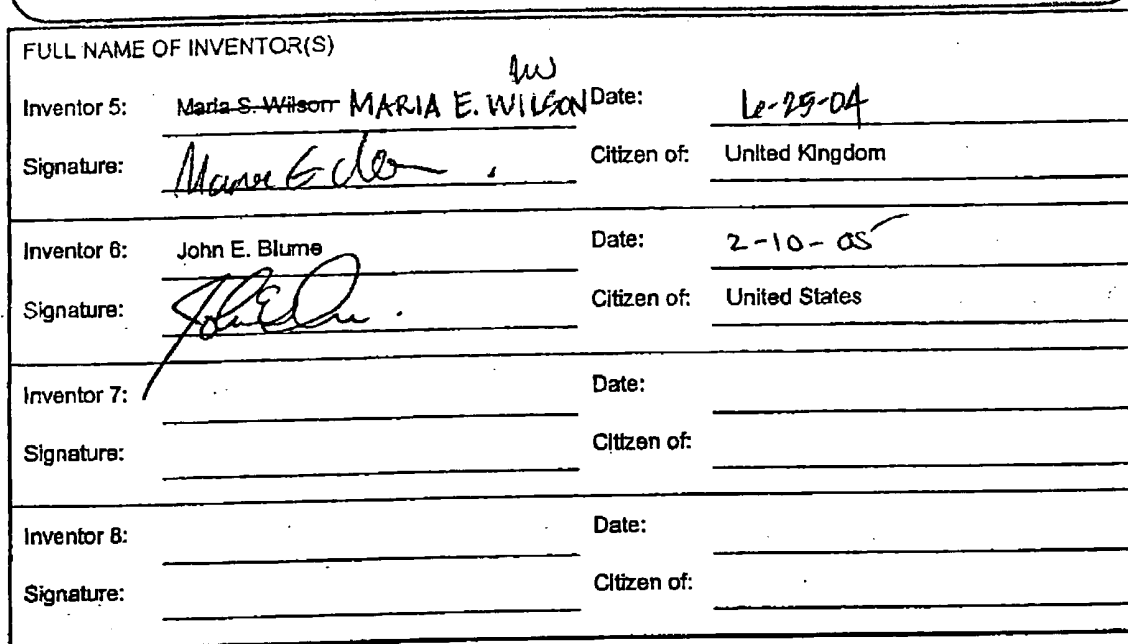 FULL NAME OF INVENTOR(S)
Inventor 5: Maria S. Wilson MARIA E. WILSON Date: 6-25-04
Signature: Citizen of: United Kingdom
Inventor 6: John E. Blume Date: 2-10-05
Signature: Citizen of: United States
Inventor 7: Date:
Signature: Citizen of:
Inventor 8: Date:
Signature: Citizen of: